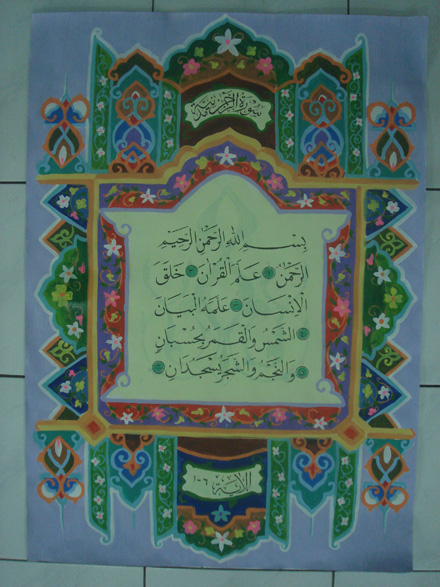 سُوْرَةُ الرَّحْمٰنِ مَدَنِيَّةٌ
بِسْمِ اللّٰهِ الرَّحْمٰنِ الرَّحِيْمِ
الرَّحْمٰنُ ١ عَلَّمَ الْقُرْاٰنَ ٢ خَلَقَ
الْاِنْسَانَ ٣ عَلَّمَهُ الْبَيَانَ ٤
الشَّمْسُ وَالْقَمَرُ بِحُسْبَانٍ ٥
وَالنَّجْمُ وَالشَّجَرُ يَسْجُدَانِ ٦
الاية ١-٦